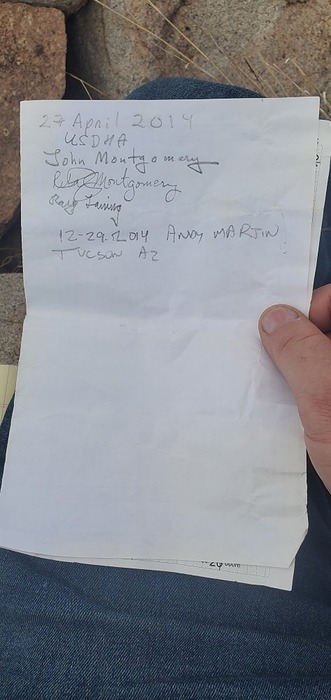 27 April 2014
USDHA
John Montgomery
Montgomery
12-29-2014 ANDY MARTIN
TUCSON AZ